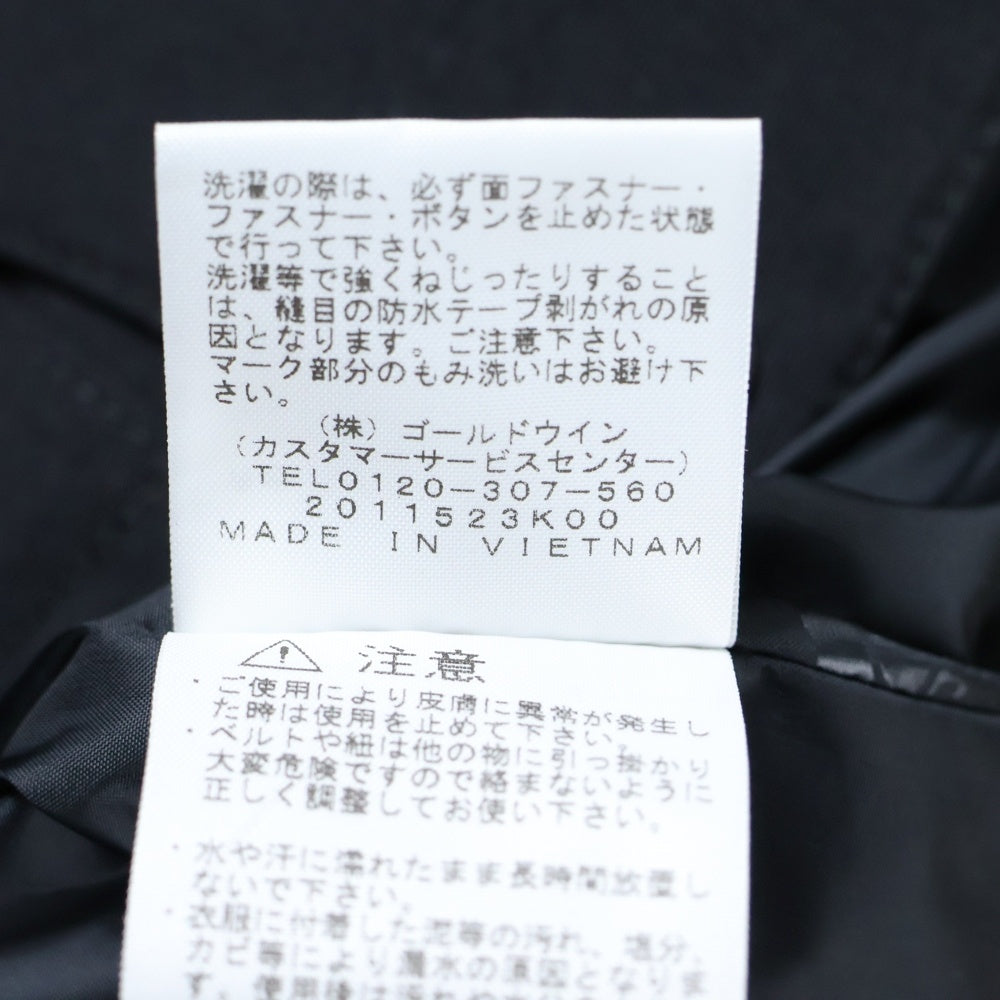 洗濯の際は、必ず面ファスナー・
ファスナー・ボタンを止めた状態
で行って下さい。
洗濯等で強くねじったりすること
は、縫目の防水テープ剥がれの原
因となります。ご注意下さい。
マーク部分のもみ洗いはお避け下
さい。
(株) ゴールドウイン
(カスタマーサービスセンター)
TEL0120-307-560
2011523K00
MADE IN VIETNAM
注意
・ご使用により皮膚に異常が発生し
た時は使用を止めて下さい。
・ベルトや紐は他の物に引っ掛かり
大変危険ですので絡まないように
正しく調整してお使い下さい。
・水や汗に濡れたまま長時間放置し
ないで下さい。
・衣服に付着した泥等の汚れ、塩分、
カビ等により漏水の原因となりま
す。使用後は汚れや